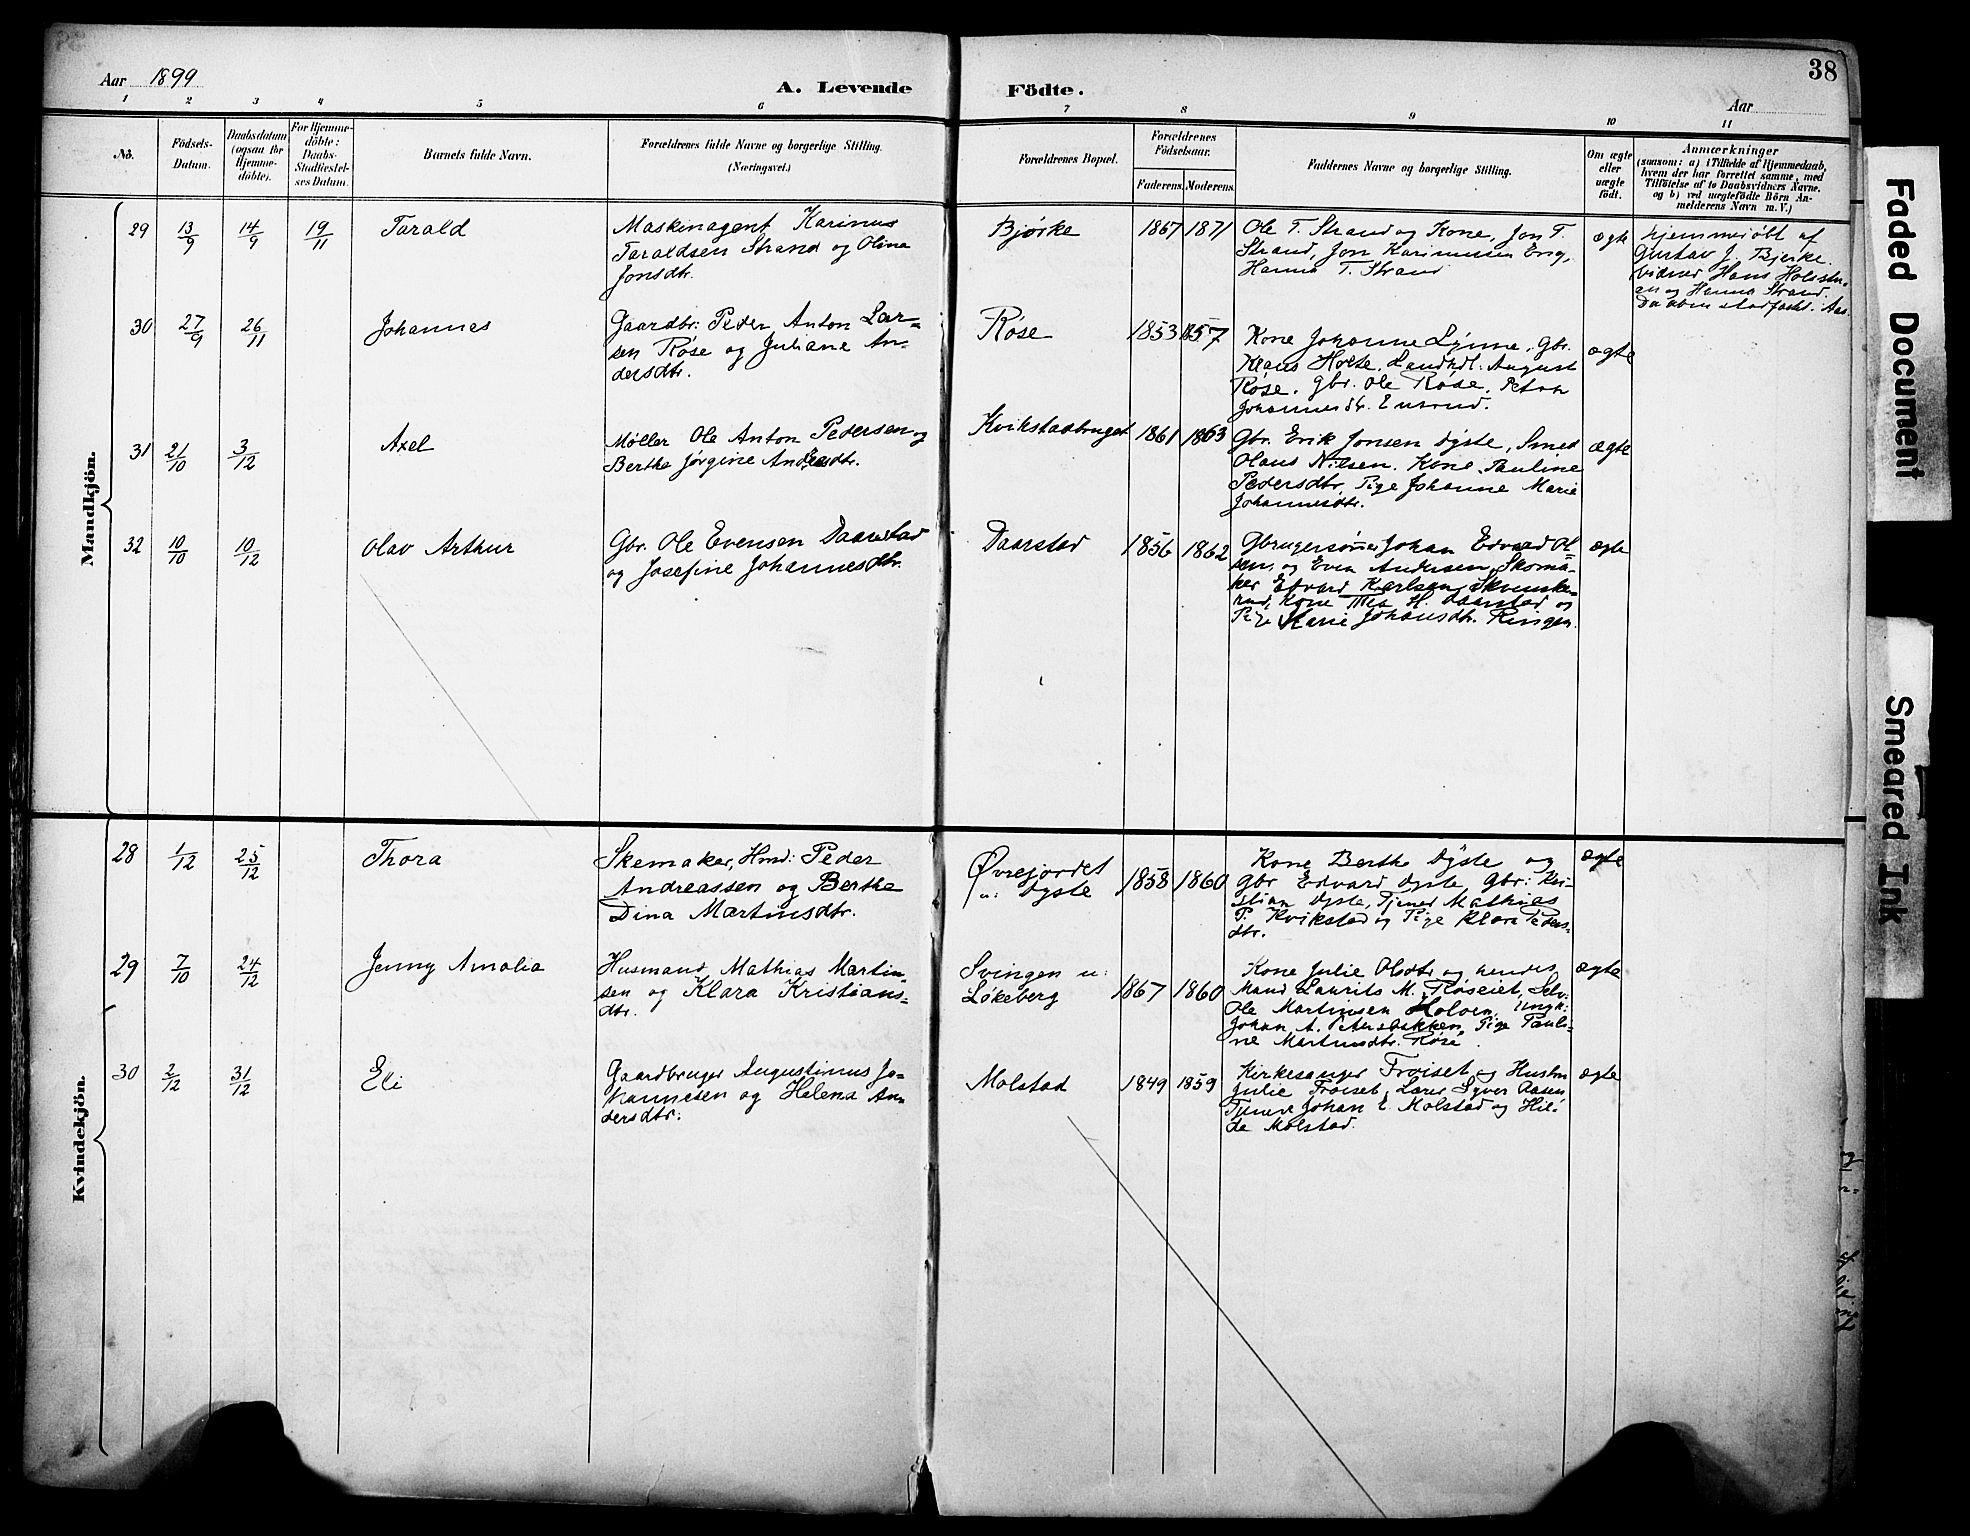 Aar 1899
A. Levende Födte.
Aar
38
1 2 3 4 5 6 7 8 9 10 11
No.
Födsels-Datum.
Daabsdatum (ogsaa for Hjemme-döbte).
For Hjemme-döbte: Daabs-Stadfæstel-ses Datum.
Barnets fulde Navn.
Forældrenes fulde Navne og borgerlige Stilling.
(Næringsvei.)
Forældrenes Bopæl.
Forældrenes Födselsaar.
Faderens. Moderens.
Faddernes Navne og borgerlige Stilling.
Om ægte eller uægte födt.
Anmærkninger
(saasom: a) i Tilfælde af Hjemmedaab,
hvem der har forrettet samme, med
Tilföielse af to Daabsvidners Navne.
og b) ved uægtefödte Börn An-
melderens Navn m. V.)
Mandkjön.
29 13/9 14/9 19/11 Tarald
Maskinagent Karinus
Taraldsen Strand og Olina
Jonsdtr.
Bjørke 1867 1871
Ole T. Strand og Kone, Jon T.
Strand, Jon Karinussen Eng,
Hanna T. Strand
ægte
Hjemmedøbt af
Gustav J. Bjerke.
Vidner Hans
og Hanna Strand.
Daaben stadfæstet.
30 27/9 26/11 Johannes
Gaardbr. Peder Anton Lar=
sen Røse og Juliane An=
dersdtr.
Røse 1853 1857
Kone Johanne Lynne, Gbr.
Klaus Holte, Landhdl. August
Røse, Gbr. Ole Røse,
Johannesdtr. Ensrud.
ægte
31 21/10 3/12 Axel
Møller Ole Anton Pedersen og
Berthe Jørgine Andersdtr.
Kvikstadbruget 1861 1863
Gbr. Erik Jonsen Dyste, Smed
Olaus Nilsen, Kone Pauline
Pedersdtr, Pige Johanne Marie
Johannesdtr.
ægte
32 10/10 10/12 Olav Arthur
Gbr. Ole Evensen Daarstad
og Josefine Johannesdtr.
Daarstad 1856 1862
Gbrugersønner Johan Edvard Ol=
sen, og Even Andersen, Skoma=
ker Edvard Karlsen
Kone Thea H. Daarstad og
Pige Marie Johansdtr. Ringen.
ægte
Kvindekjön.
28 1/12 25/12 Thora
Skomaker, Hmd: Peder
Andreassen og Berthe
Dina Martinsdtr.
Øvrejordet
u: Dyste
1858 1860
Kone Berthe Dyste og
Gbr Edvard Dyste, Gbr: Kri=
stian Dyste, Tjener Mathias
P. Kvikstad og Pige Klara Peders=
dtr.
ægte
29 7/10 24/12 Jenny Amalia
Husmand Mathias Martin=
sen og Klara Kristians=
dtr.
Svingen u:
Løkeberg
1867 1860
Kone Julie Olsdtr og hendes
Mand Laurits M. Røseiet, Selv:
Ole Martinsen Holven, Ungk:
Johan A. Petersbakken, Pige Pauli=
ne Martinsdtr. Røse.
ægte
30 2/12 31/12 Eli
Gaardbruger Augustinus Jo=
hannesen og Helena An
dersdtr:
Molstad 1849 1859
Kirkesanger Frøiset og Hustru
Julie Frøiset, Lærer Syver
Tjenere Johan E. Molstad og Hil=
da Molstad.
ægte
Faded Document
Smeared Ink